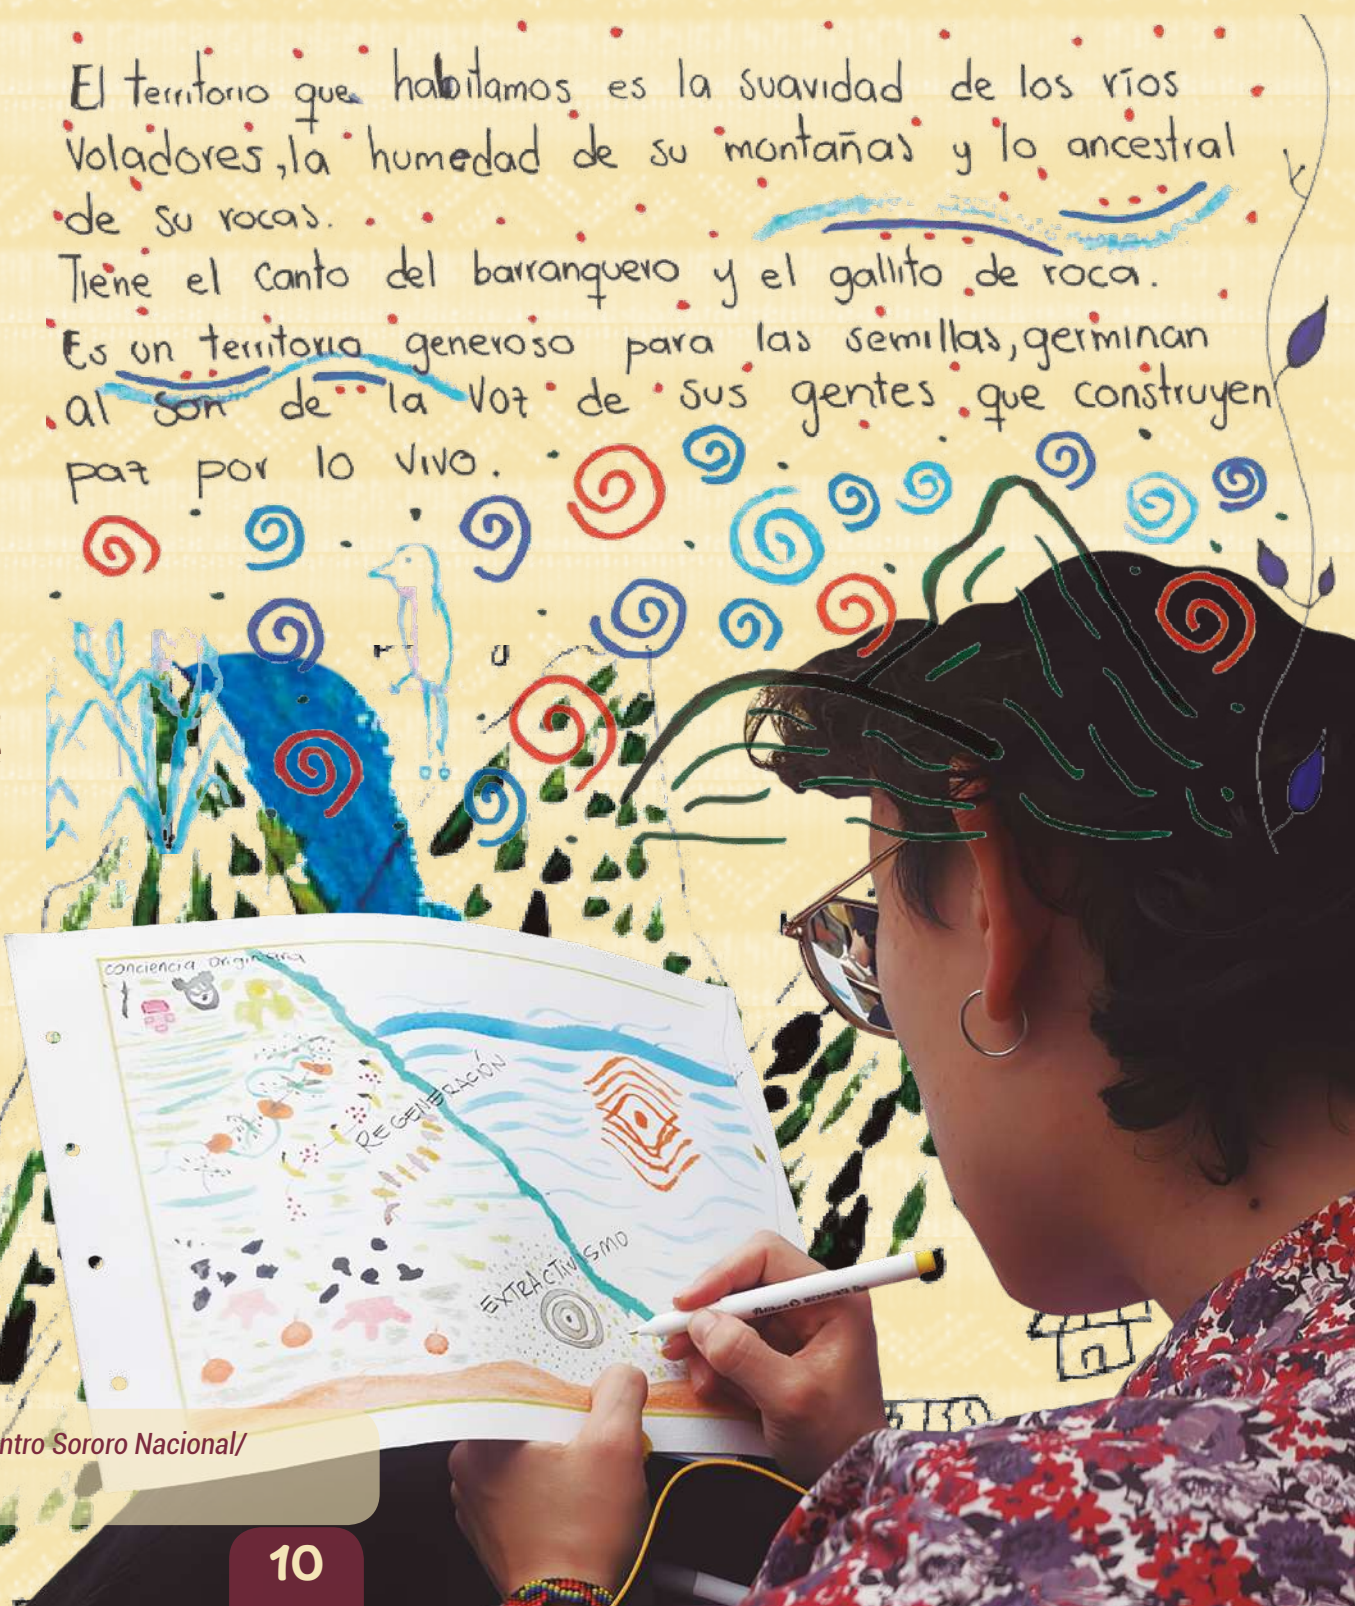 El territorio que habitamos es la suavidad de los ríos
voladores, la humedad de su montañas y lo ancestral
de su rocas.
Tiene el canto del barranquero y el gallito de roca.
Es un territorio generoso para las semillas, germinan
al son de la voz de sus gentes que construyen
paz por lo vivo.
conciencia originaria
REGENERACIÓN
EXTRACTIVISMO
ntro Sororo Nacional/
10